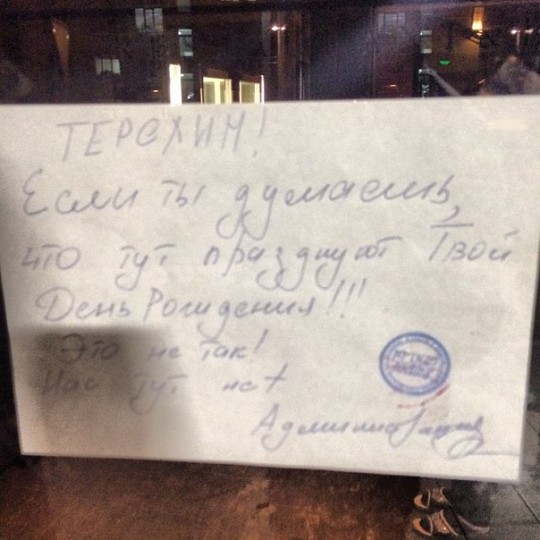 ТЕРЕХИН!
Если ты думаешь,
что тут празднуют Твой
День Рождения!!!
Это не так!
Нас тут нет
Администрация